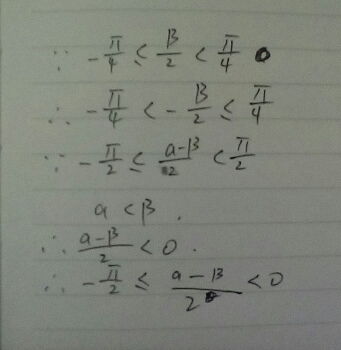 ∵ -π/4 ≤ β/2 < π/4
∴ -π/4 < -β/2 ≤ π/4
∵ -π/2 ≤ (a-β)/2 < π/2
a < β .
∴ (a-β)/2 < 0 .
∴ -π/2 ≤ (a-β)/2 < 0